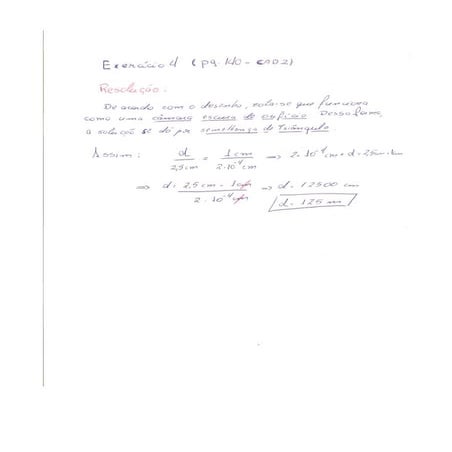 Exercício 4 (pg. 140 - CAD2)
Resolução.
De acordo com o desenho, nota-se que funciona
como uma câmara escura de orifício. Dessa forma,
a solução se dá por semelhança de Triângulo.
Assim: d/2,5cm = 1cm/2·10⁻⁴cm ⇒ 2·10⁻⁴cm·d=2,5cm·1cm
⇒ d= 2,5cm · 1cm/2·10⁻⁴cm ⇒ d= 12500 cm
d= 125 m